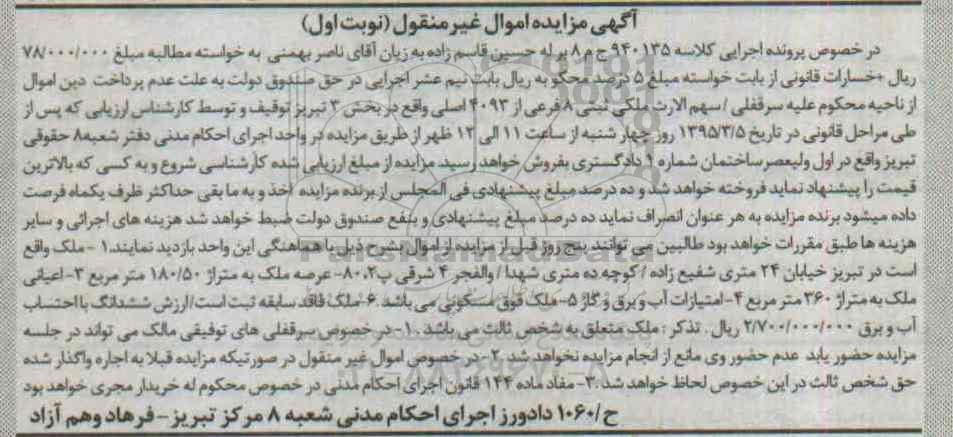 آگهی مزایده اموال غیر منقول (نوبت اول)
در خصوص پرونده اجرایی کلاسه ۹۴۰۱۳۵ ج م ۸ بر له حسین قاسم زاده به زیان آقای ناصر بهمنی به خواسته مطالبه مبلغ ۷۸/۰۰۰/۰۰۰
ریال +خسارات قانونی از بابت خواسته مبلغ ۵ درصد محکو به ریال بابت نیم عشر اجرایی در حق صندوق دولت به علت عدم پرداخت دین اموال
از ناحیه محکوم علیه سرقفلی / سهم الارث ملکی ثبتی ۸ فرعی از ۴۰۹۳ اصلی واقع در بخش ۳ تبریز توقیف و توسط کارشناس ارزیابی که پس از
طی مراحل قانونی در تاریخ ۱۳۹۵/۳/۵ روز چهار شنبه از ساعت ۱۱ الی ۱۲ ظهر از طریق مزایده در واحد اجرای احکام مدنی دفتر شعبه۸ حقوقی
تبریز واقع در اول ولیعصر ساختمان شماره ۱ دادگستری بفروش خواهد رسید. مزایده از مبلغ ارزیابی شده کارشناسی شروع و به کسی که بالاترین
قیمت را پیشنهاد نماید فروخته خواهد شد و ده درصد مبلغ پیشنهادی فی المجلس از برنده مزایده اخذ و به ما بقی حداکثر ظرف یکماه فرصت
داده میشود برنده مزایده به هر عنوان انصراف نماید ده درصد مبلغ پیشنهادی و بنفع صندوق دولت ضبط خواهد شد هزینه های اجرائی و سایر
هزینه ها طبق مقررات خواهد بود طالبین می توانند پنج روز قبل از مزایده از اموال بشرح ذیل با هماهنگی این واحد بازدید نمایند.۱ -ملک واقع
است در تبریز خیابان ۲۴ متری شفیع زاده / کوچه ده متری شهدا / والفجر ۴ شرقی پ۸۰.۲- عرصه ملک به متراژ ۱۸۰/۵۰ متر مربع ۳-اعیانی
ملک به متراژ ۳۶۰ متر مربع ۴-امتیازات آب و برق و گاز ۵-ملک فوق مسکونی می باشد ۶-ملک فاقد سابقه ثبت است/ ارزش ششدانگ با احتساب
آب و برق ۲/۷۰۰/۰۰۰/۰۰۰ ریال . تذکر : ملک متعلق به شخص ثالث می باشد .۱-در خصوص سرقفلی های توقیفی مالک می تواند در جلسه
مزایده حضور یابد عدم حضور وی مانع از انجام مزایده نخواهد شد .۲-در خصوص اموال غیر منقول در صورتیکه مزایده قبلا به اجاره واگذار شده
حق شخص ثالث در این خصوص لحاظ خواهد شد .۳- مفاد ماده ۱۴۴ قانون اجرای احکام مدنی در خصوص محکوم له خریدار مجری خواهد بود
ح/۱۰۶۰ دادورز اجرای احکام مدنی شعبه ۸ مرکز تبریز - فرهاد وهم آزاد